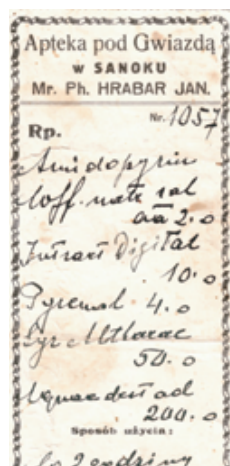 Apteka pod Gwiazdą
w SANOKU
Mr. Ph. HRABAR JAN.
Nr. 1057
Rp.
Amidopyrin
Coff. natr sal
aa 2.0
Digital
10.0
4.0
50.0
Aquae dest ad
200.0
Sposób użycia:
Co 2 godziny